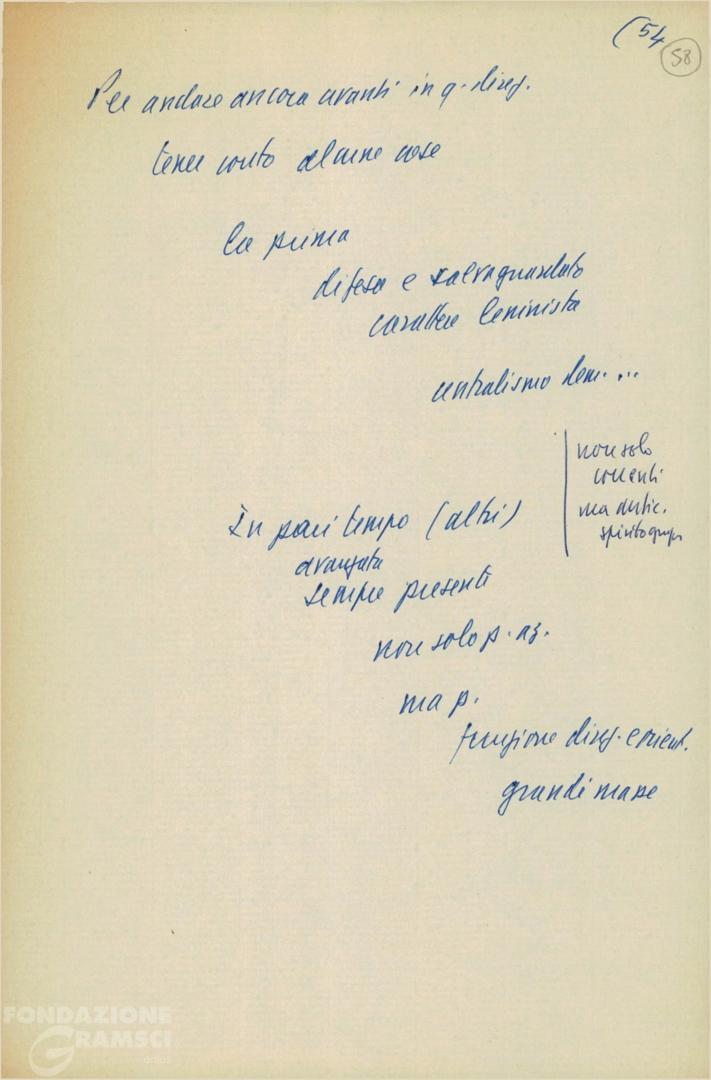 (54
58
Per andare ancora avanti in q. direz.
tener conto alcune cose
La prima
difesa e salvaguardato
carattere leninista
centralismo dem. ...
non solo
correnti
ma
spirito
In pari tempo (altri)
avanzata
sempre presenti
non solo p. az.
ma p.
funzione direz. e orient.
grandi masse
FONDAZIONE
GRAMSCI
onlus